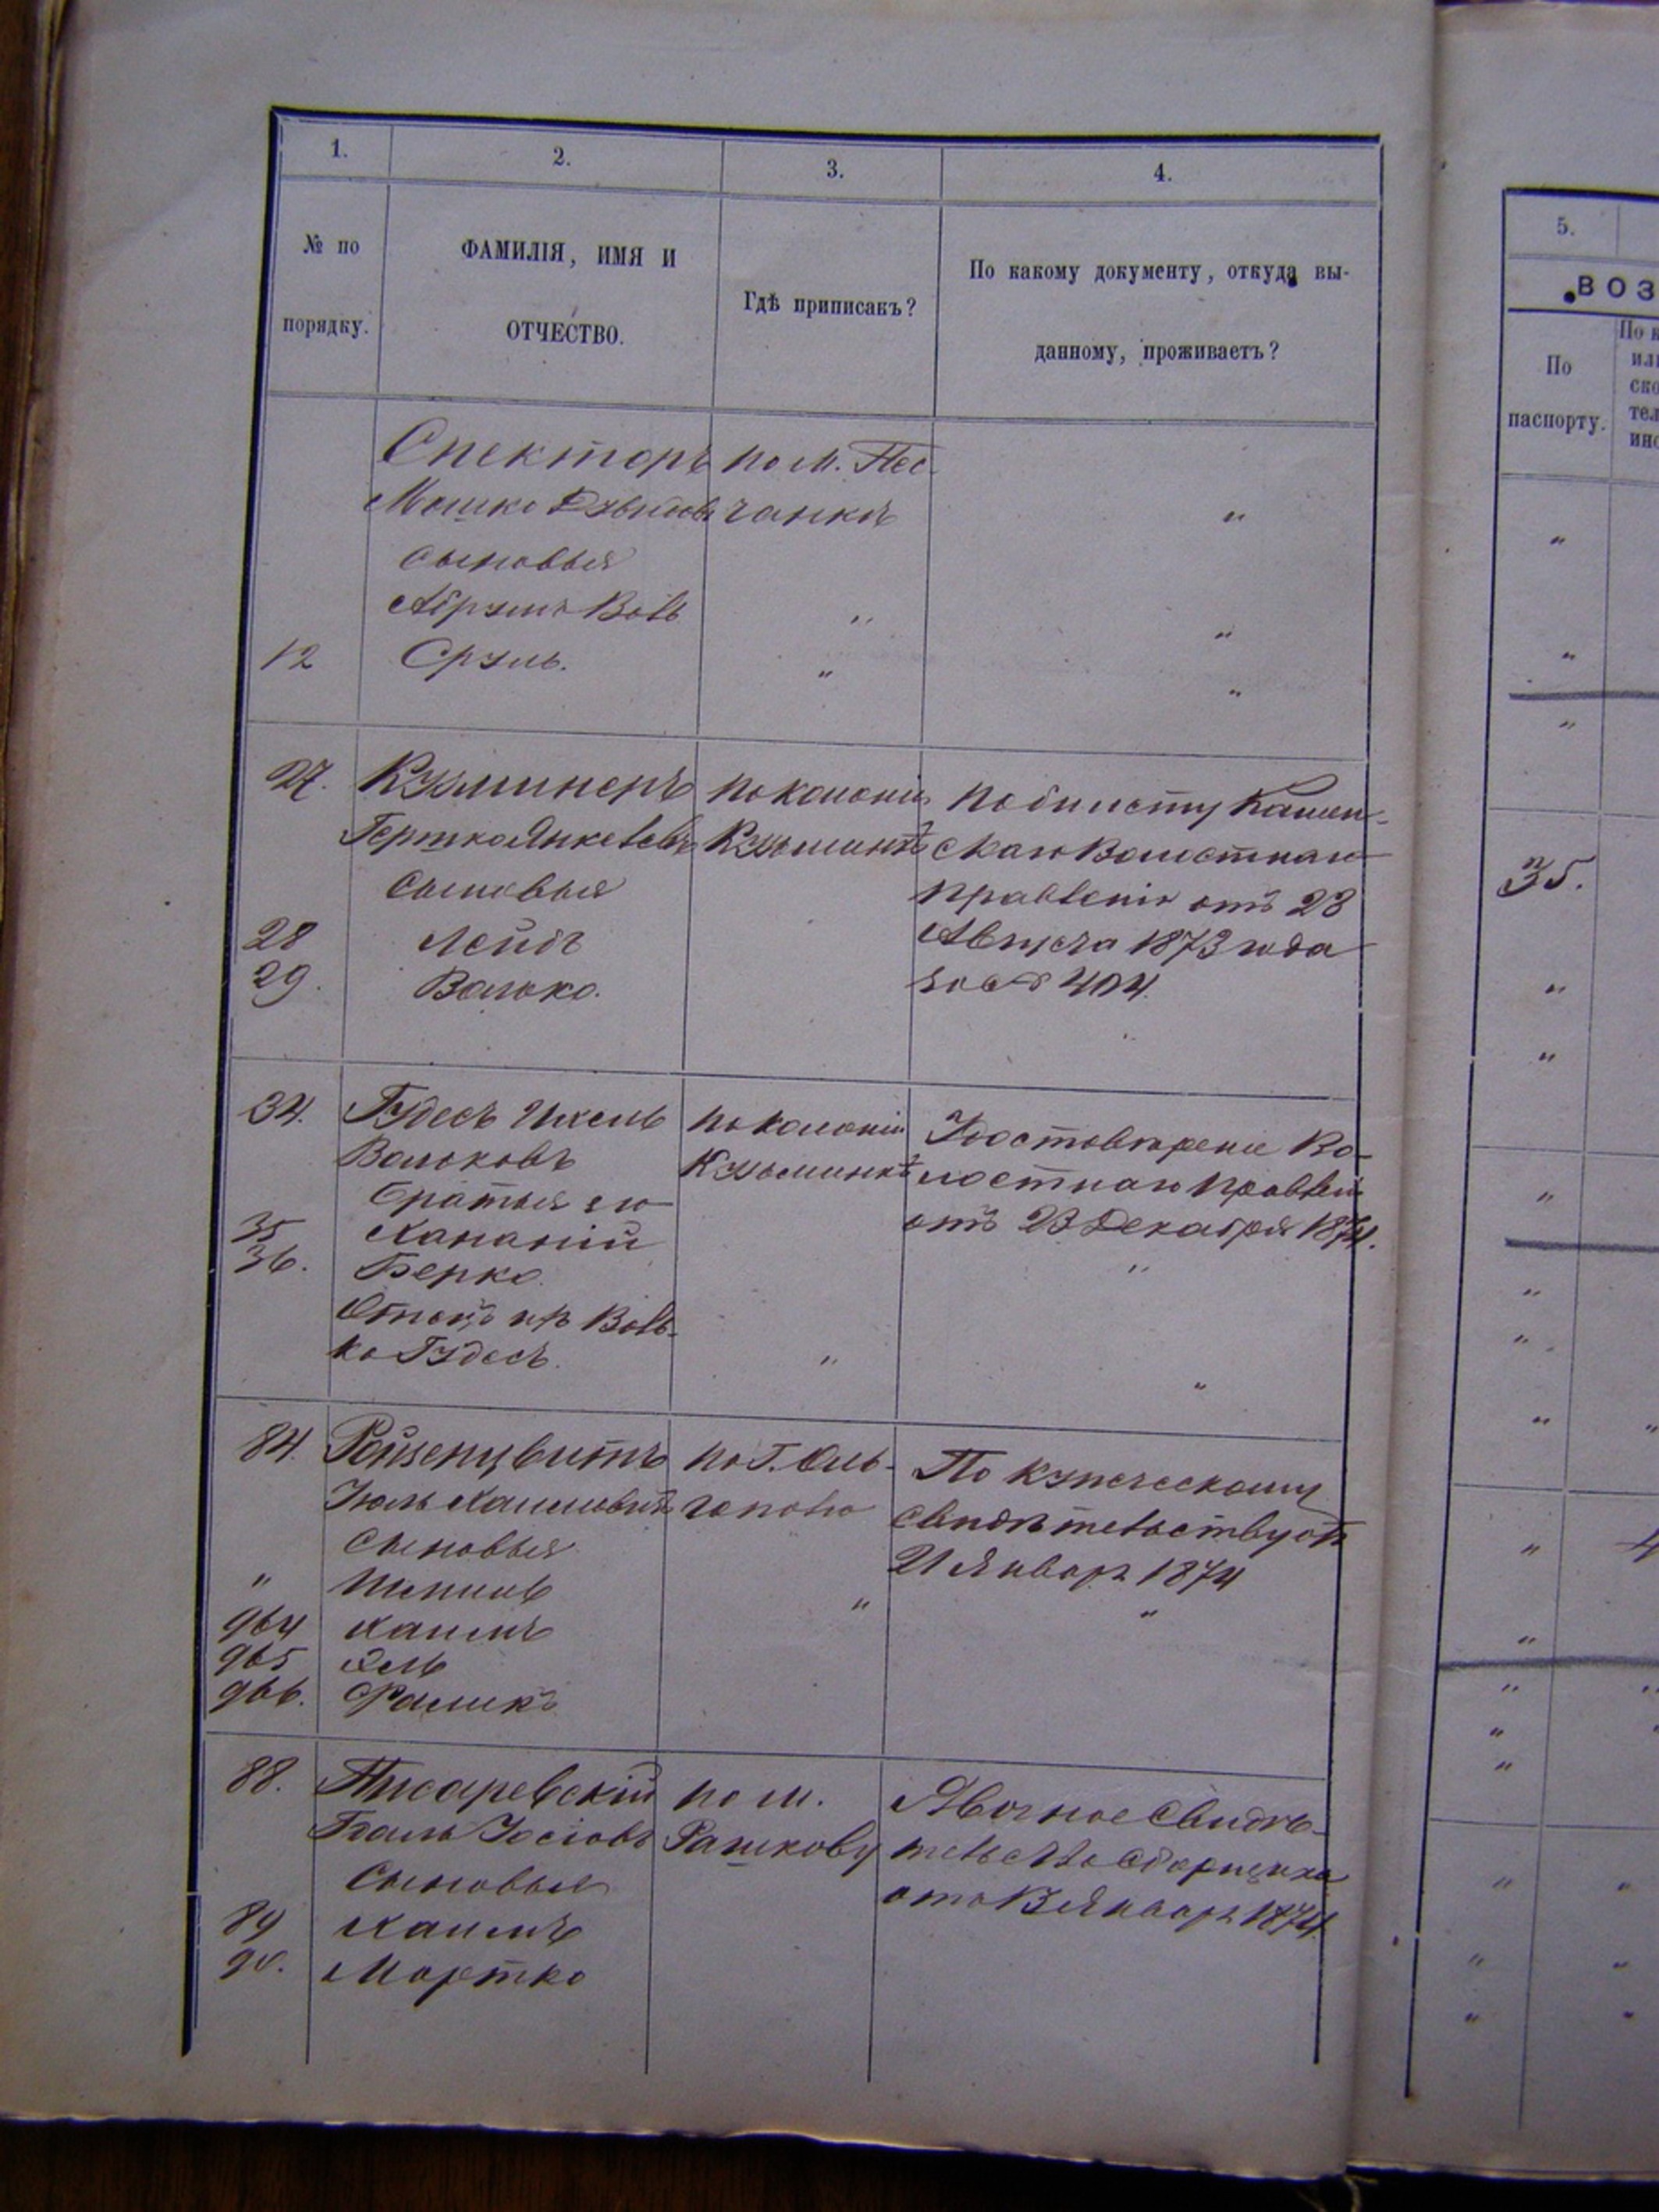 1.
2.
3.
4.
№ по
порядку.
ФАМИЛІЯ, ИМЯ И
ОТЧЕСТВО.
Гдѣ приписакъ?
По какому документу, откуда вы-
данному, проживаетъ?
Спекторъ
Мошко
сыновья
Абрумъ Воль
12 Сруль.
по м. Пес-
чанкѣ
„
„
„
„
„
27. Кузминеръ
Гершко Янкелевъ
Сыновья
28 Лейбъ
29. Волько.
по колоніи
Кузьминкѣ
по билету Камен-
скаго Волостнаго
правленія отъ 23
Августа 1873 года
за № 404.
34. Гудесъ Ихель
Вольковъ
братья его
35 Хананій
36. Берко.
Отецъ ихъ Воль-
ко Гудесъ.
по колоніи
Кузьминкѣ
„
Удостовѣреніе Во-
лостнаго правлен
отъ 23 Декабря 1874.
„
„
84. Ройзенцвитъ
Іюль Хаимовичъ
Сыновья
„
964 Хаимъ
965 Эль
966. Фаликъ
по г. Оль-
гополю
„
По купеческому
свидѣтельству отъ
21 Января 1874
„
88. Писаревскій
Іосіовъ
Сыновья
89 Хаимъ
90. Мортко
по м.
Рашкову
Явочное Свидѣ-
тельство Сборщика
отъ Января 1874.
5.
ВОЗ
По
паспорту.
По к
или
ско
тел
ино
„
„
„
35.
„
„
„
„
„
„
„
„
„
„
„
„
„
„